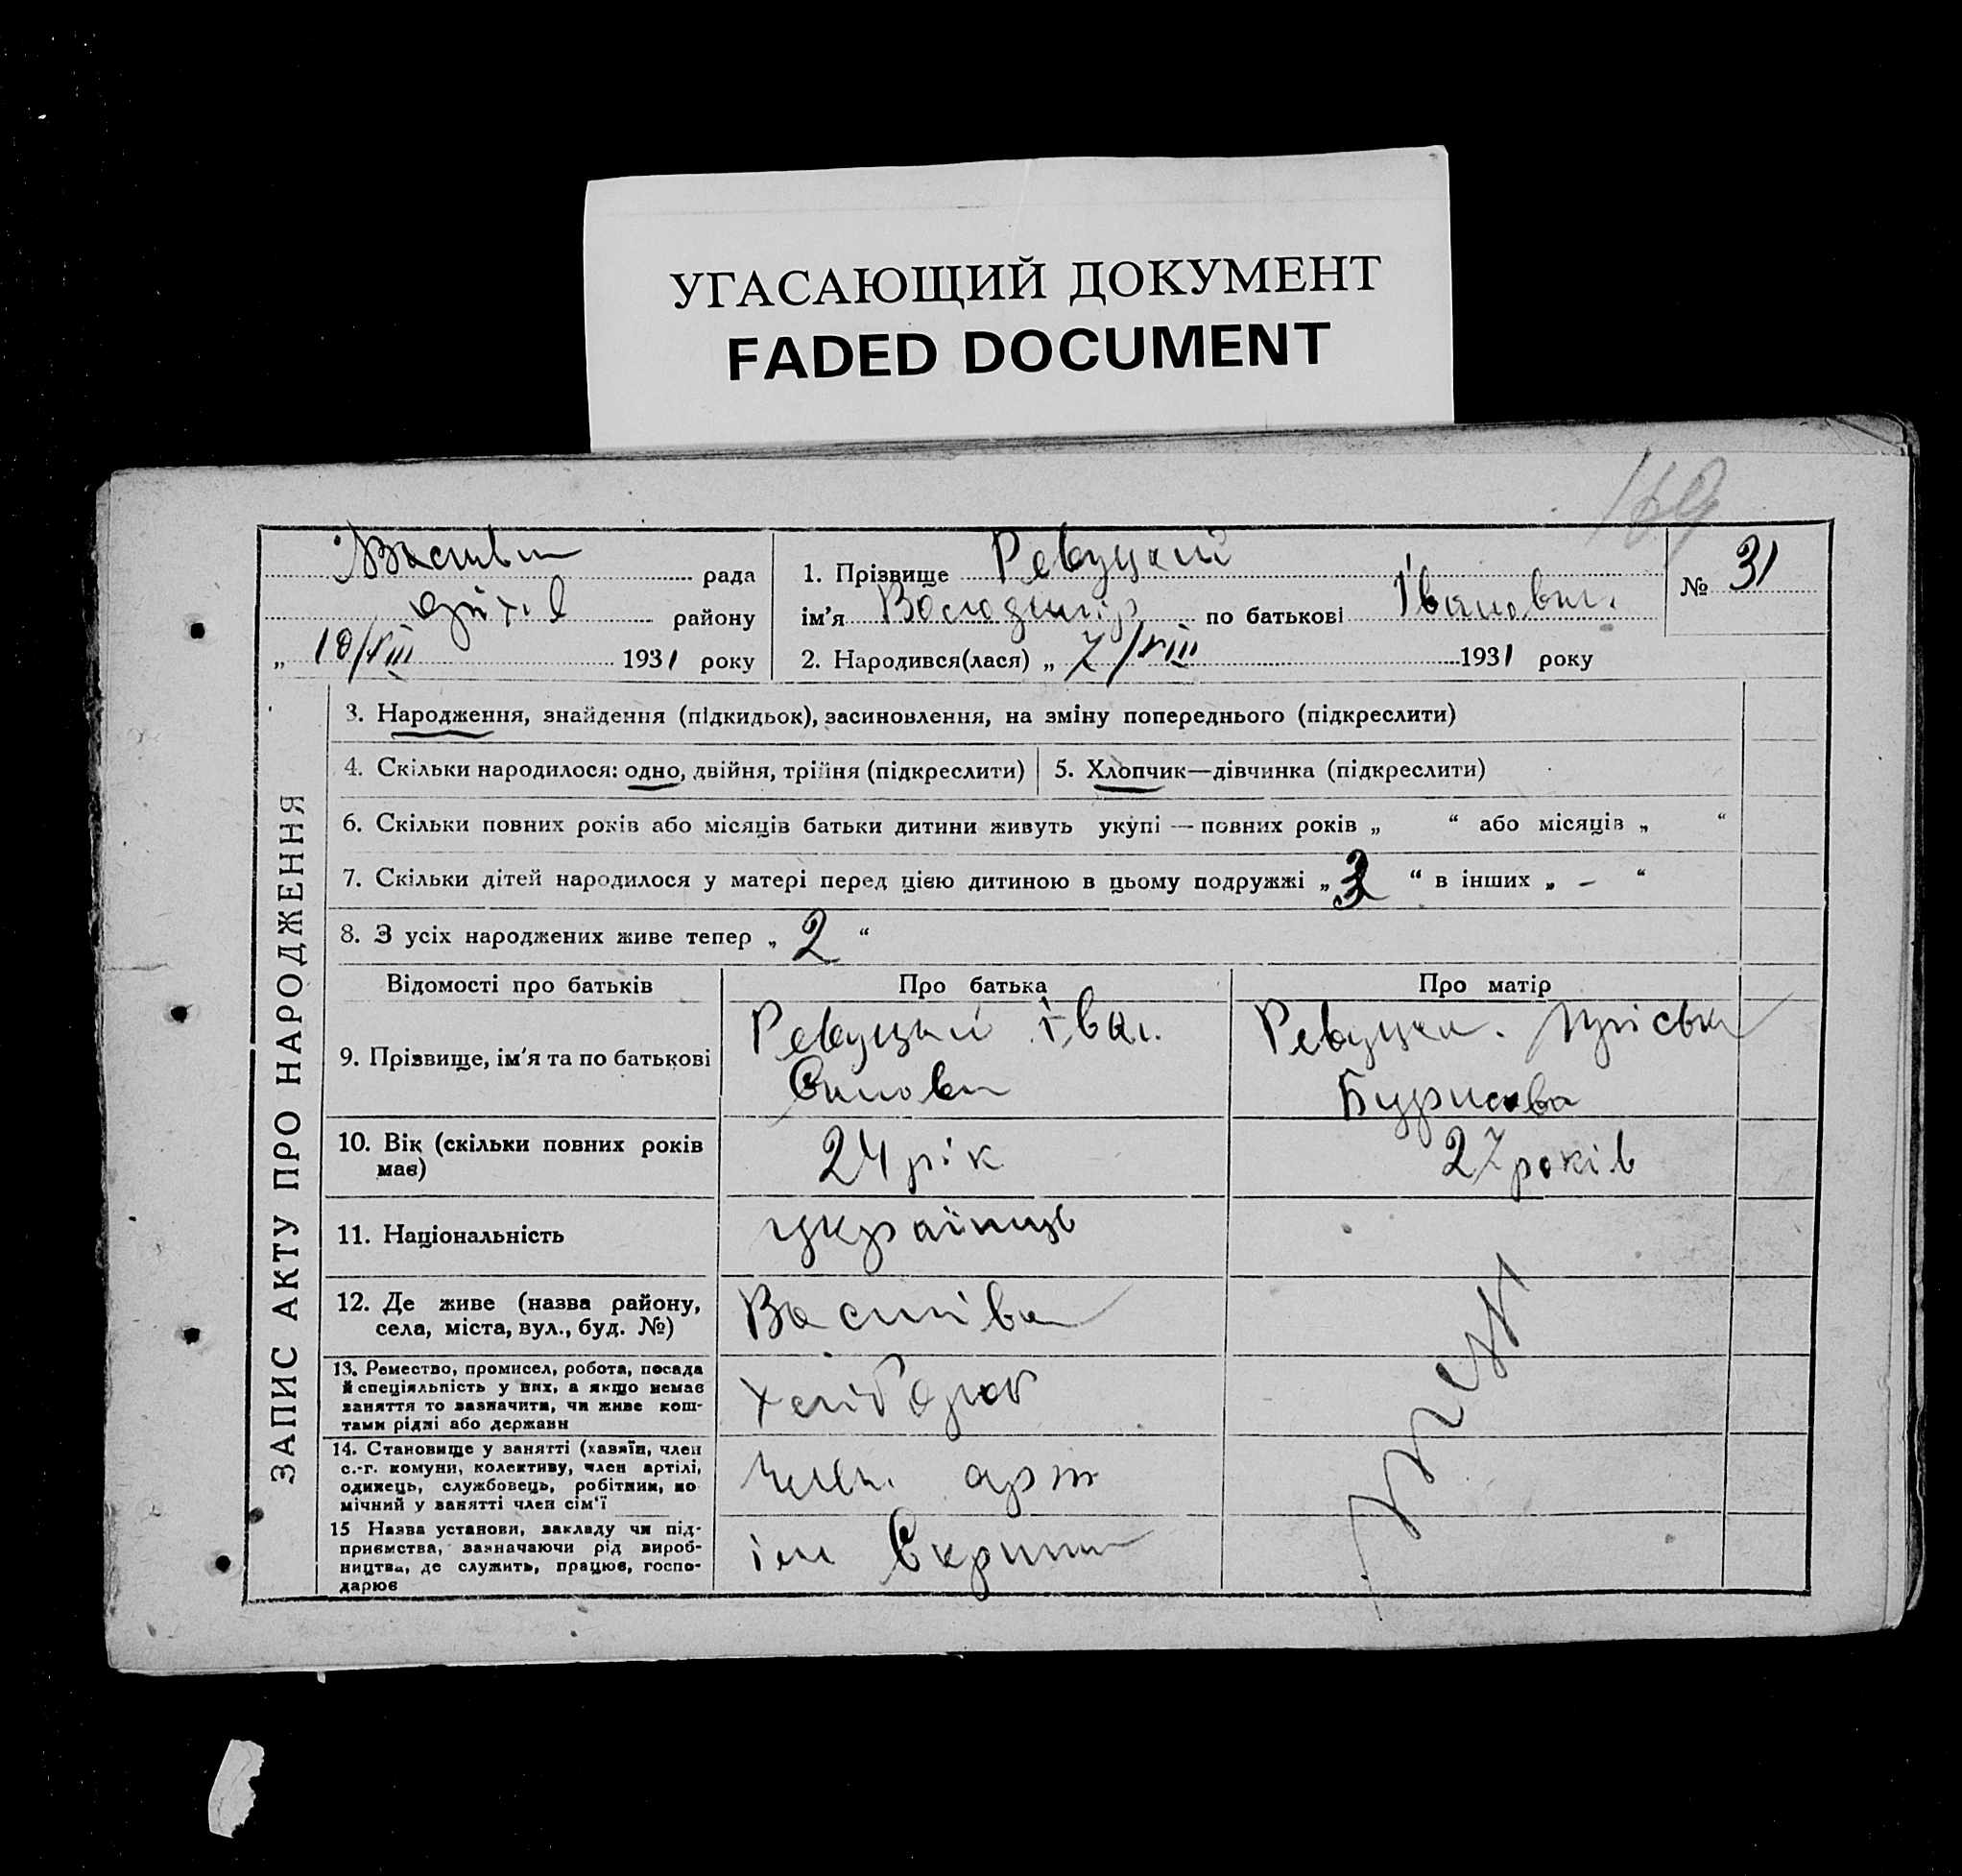 УГАСАЮЩИЙ ДОКУМЕНТ
FADED DOCUMENT
169
рада
району
„ 10/VIII 1931 року
1. Прізвище Ревуцкий
ім’я Володимір по батькові Іванович
2. Народився(лася) „ 7/VIII 1931 року
№ 31
ЗАПИС АКТУ ПРО НАРОДЖЕННЯ
3. Народження, знайдення (підкидьок), засиновлення, на зміну попереднього (підкреслити)
4. Скільки народилося: одно, двійня, трійня (підкреслити)
5. Хлопчик—дівчинка (підкреслити)
6. Скільки повних років або місяців батьки дитини живуть укупі — повних років „ “ або місяців „ “
7. Скільки дітей народилося у матері перед цією дитиною в цьому подружжі „ 3 “ в інших „ – “
8. З усіх народжених живе тепер „ 2 “
Відомості про батьків Про батька Про матір
9. Прізвище, ім’я та по батькові
Ревуцкий Іван
Ревуцка
10. Вік (скільки повних років
має)
24 рік
27 років
11. Національність
українць
12. Де живе (назва району,
села, міста, вул., буд. №)
13. Ремество, промисел, робота, посада
й спеціяльність у них, а якщо немає
заняття то зазначити, чи живе кош-
тами рідні або держави
хлібороб
14. Становище у занятті (хазяїн, член
с.-г. комуни, колективу, член артілі,
одинець, службовець, робітник, по
мічний у занятті член сім’ї
член арт
15 Назва установи, закладу чи під-
приємства, зазначаючи рід вироб-
ництва, де служить, працює, госпо-
дарює
ім